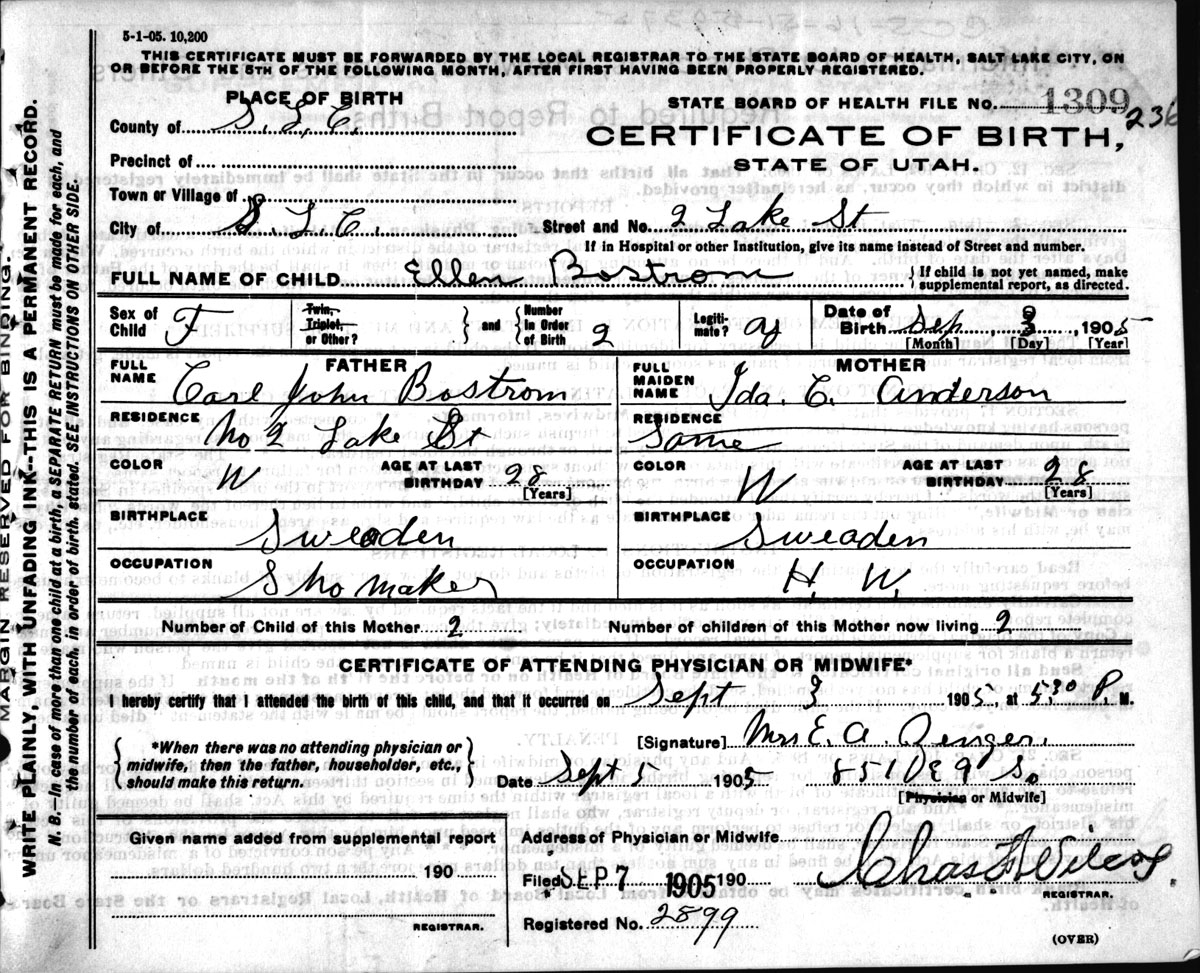 5-1-05. 10,200
THIS CERTIFICATE MUST BE FORWARDED BY THE LOCAL REGISTRAR TO THE STATE BOARD OF HEALTH, SALT LAKE CITY, ON
OR BEFORE THE 5TH OF THE FOLLOWING MONTH, AFTER FIRST HAVING BEEN PROPERLY REGISTERED.
PLACE OF BIRTH
STATE BOARD OF HEALTH FILE No. 1309 236
County of S. L. C.
CERTIFICATE OF BIRTH,
Precinct of
STATE OF UTAH.
Town or Village of
City of S. L. C. Street and No. 2 Lake St
If in Hospital or other Institution, give its name instead of Street and number.
FULL NAME OF CHILD Ellen Bostrom {If child is not yet named, make
supplemental report, as directed.
Sex of Child F Twin, Triplet, or Other? } and { Number in Order of Birth 2 Legiti-mate? Date of Birth Sep 3, 1905
[Month] [Day] [Year]
FATHER MOTHER
FULL NAME Carl John Bostrom FULL MAIDEN NAME Ida. C. Anderson
RESIDENCE No 2 Lake St RESIDENCE Same
COLOR W AGE AT LAST BIRTHDAY 28 [Years] COLOR W AGE AT LAST BIRTHDAY 28 [Years]
BIRTHPLACE Sweaden BIRTHPLACE Sweaden
OCCUPATION Shomaker OCCUPATION H. W.
Number of Child of this Mother 2 Number of children of this Mother now living 2
CERTIFICATE OF ATTENDING PHYSICIAN OR MIDWIFE*
I hereby certify that I attended the birth of this child, and that it occurred on Sept 3 1905, at 530 P. M.
{*When there was no attending physician or
midwife, then the father, householder, etc.,
should make this return.}
[Signature] Mrs E. A.
Date Sept 5 1905 So
[Physician or Midwife]
Given name added from supplemental report
Address of Physician or Midwife
190
Filed SEP 7 1905 190 Chas
REGISTRAR.
Registered No. 2899
REGISTRAR.
(OVER)
MARGIN RESERVED FOR BINDING.
WRITE PLAINLY, WITH UNFADING INK--THIS IS A PERMANENT RECORD.
N. B.--In case of more than one child at a birth, a SEPARATE RETURN must be made for each, and
the number of each, in order of birth, stated. SEE INSTRUCTIONS ON OTHER SIDE.